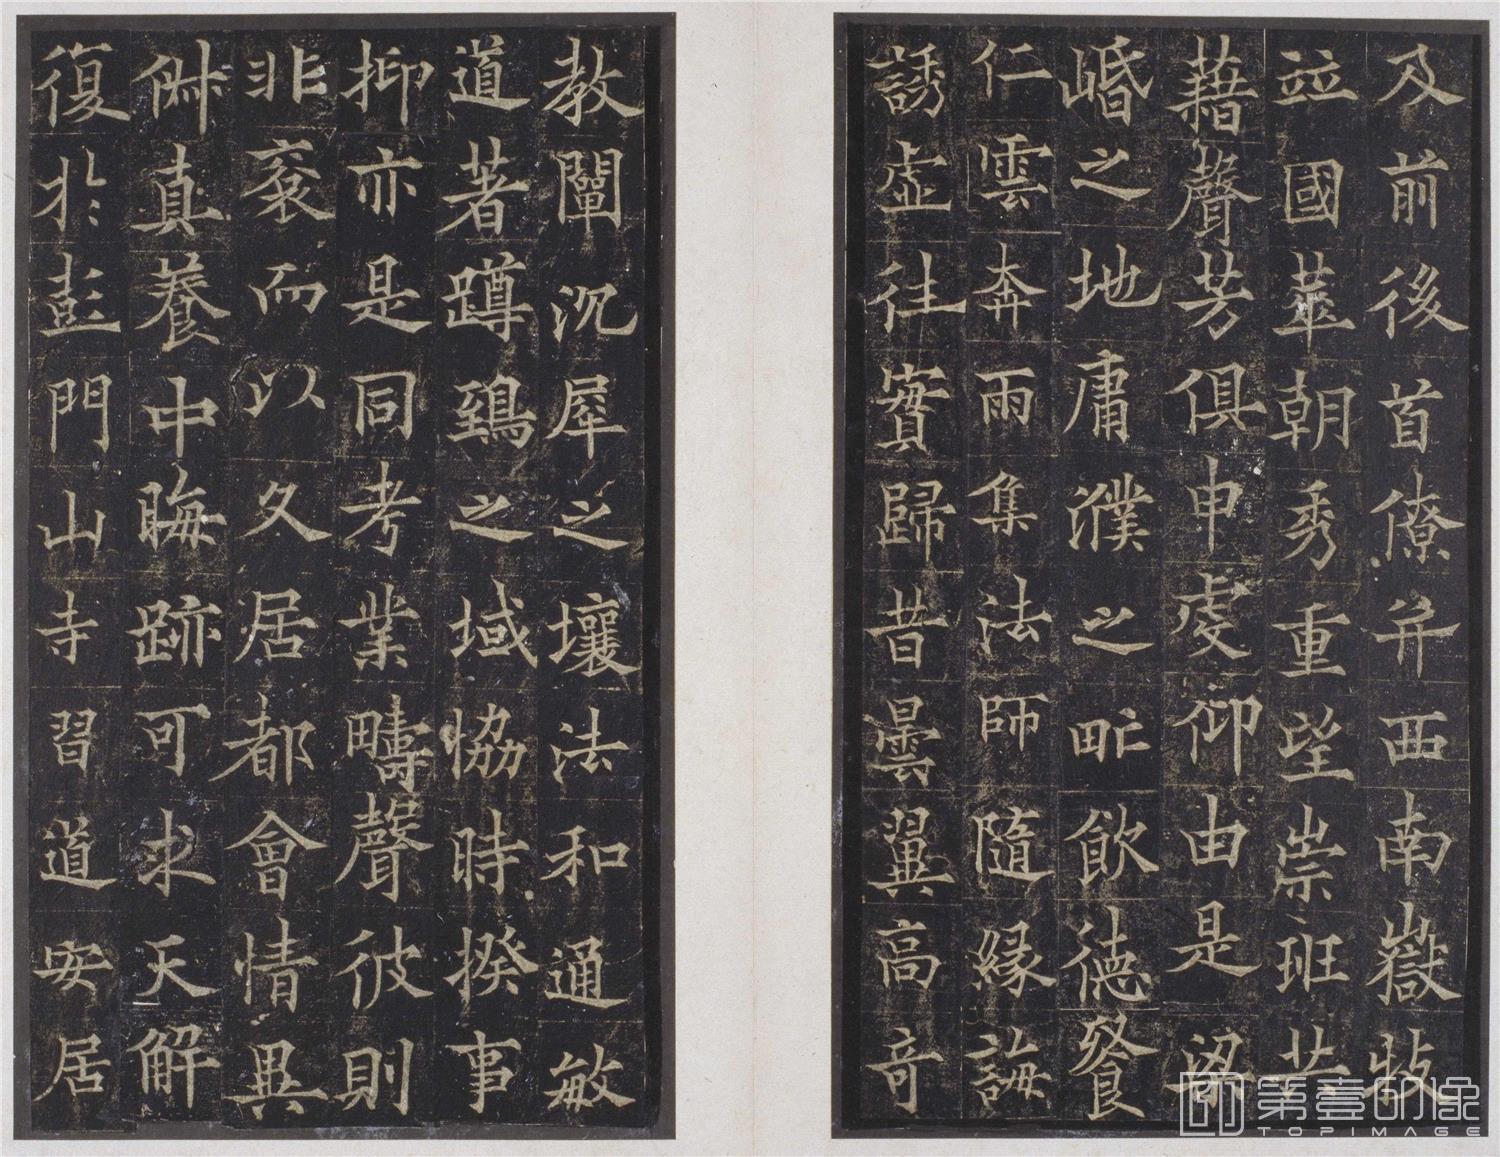 及前後首僚并西南嶽牧
竝國華朝秀重望崇班芸
藉聲芳俱申虔仰由是梁
崏之地庸濮之甿飲德餐
仁雲奔雨集法師隨緣誨
誘虛往實歸昔曇翼高奇
教闡沉犀之壤法和通敏
道著蹲鵄之域協時揆事
抑亦是同考業疇聲彼則
非袞而以久居都會情異
倂真養中晦跡可求天解
復於彭門山寺習道安居
第壹印像
TOPIMAGE